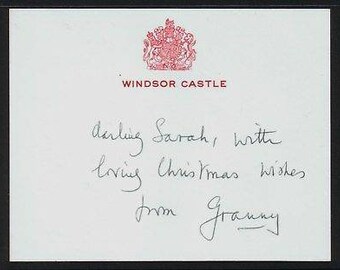 WINDSOR CASTLE
darling Sarah, with
loving Christmas wishes
from Granny